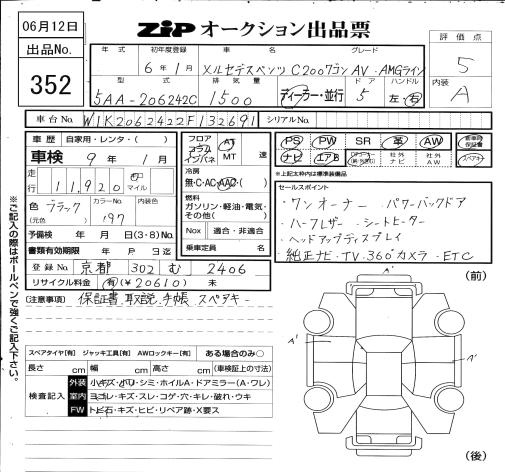 06月12日
ZIP オークション出品票
出品No.
352
年式
初年度登録
車名
グレード
6年1月
メルセデスベンツ C200ワゴン AV・AMGライン
型式
排気量
ドア
ハンドル
5AA-206242C
1500
ディーラー・並行
5
左・右
評価点
5
内装
A
車台No.
W1K2062422F132691
シリアルNo.
車歴
自家用・レンタ・( )
車検
9年1月
走行
11,920
マイル
色
(元色)
ブラック
カラーNo.
197
内装色
予備検
年 月 日(3・8)Mo.
書類有効期限
年 月 日迄
登録No.
京都 302 む 2406
リサイクル料金
有(¥20610) 未
フロア
コラム
インパネ
AT
MT
速
冷房
無・C・AC・AAC・( )
燃料
ガソリン・軽油・電気・
その他( )
Nox
適合・非適合
乗車定員
名
PS
PW
SR
革
AW
ナビ
エアB
社外ナビ
社外AW
保証書
スペアキー
※上記太枠内は標準装備品
セールスポイント
・ワンオーナー ・パワーバックドア
・ハーフレザー ・シートヒーター
・ヘッドアップディスプレイ
・純正ナビ・TV・360°カメラ・ETC
(注意事項)
保証書、取説、手帳 スペアキー
※ご記入の際はボールペンで強くご記入下さい。
スペアタイヤ[有]
ジャッキ工具[有]
AWロックキー[有]
ある場合のみ○
長さ cm
幅 cm
高さ cm
(車検証上の寸法)
検査記入
外装
小キズ・小凹・シミ・ホイルA・ドアミラー(A・ワレ)
室内
ヨゴレ・キズ・スレ・コゲ・穴・キレ・破れ・ウキ
FW
トビ石・キズ・ヒビ・リペア跡・X要ス
(前)
A'
A'
A'
(後)